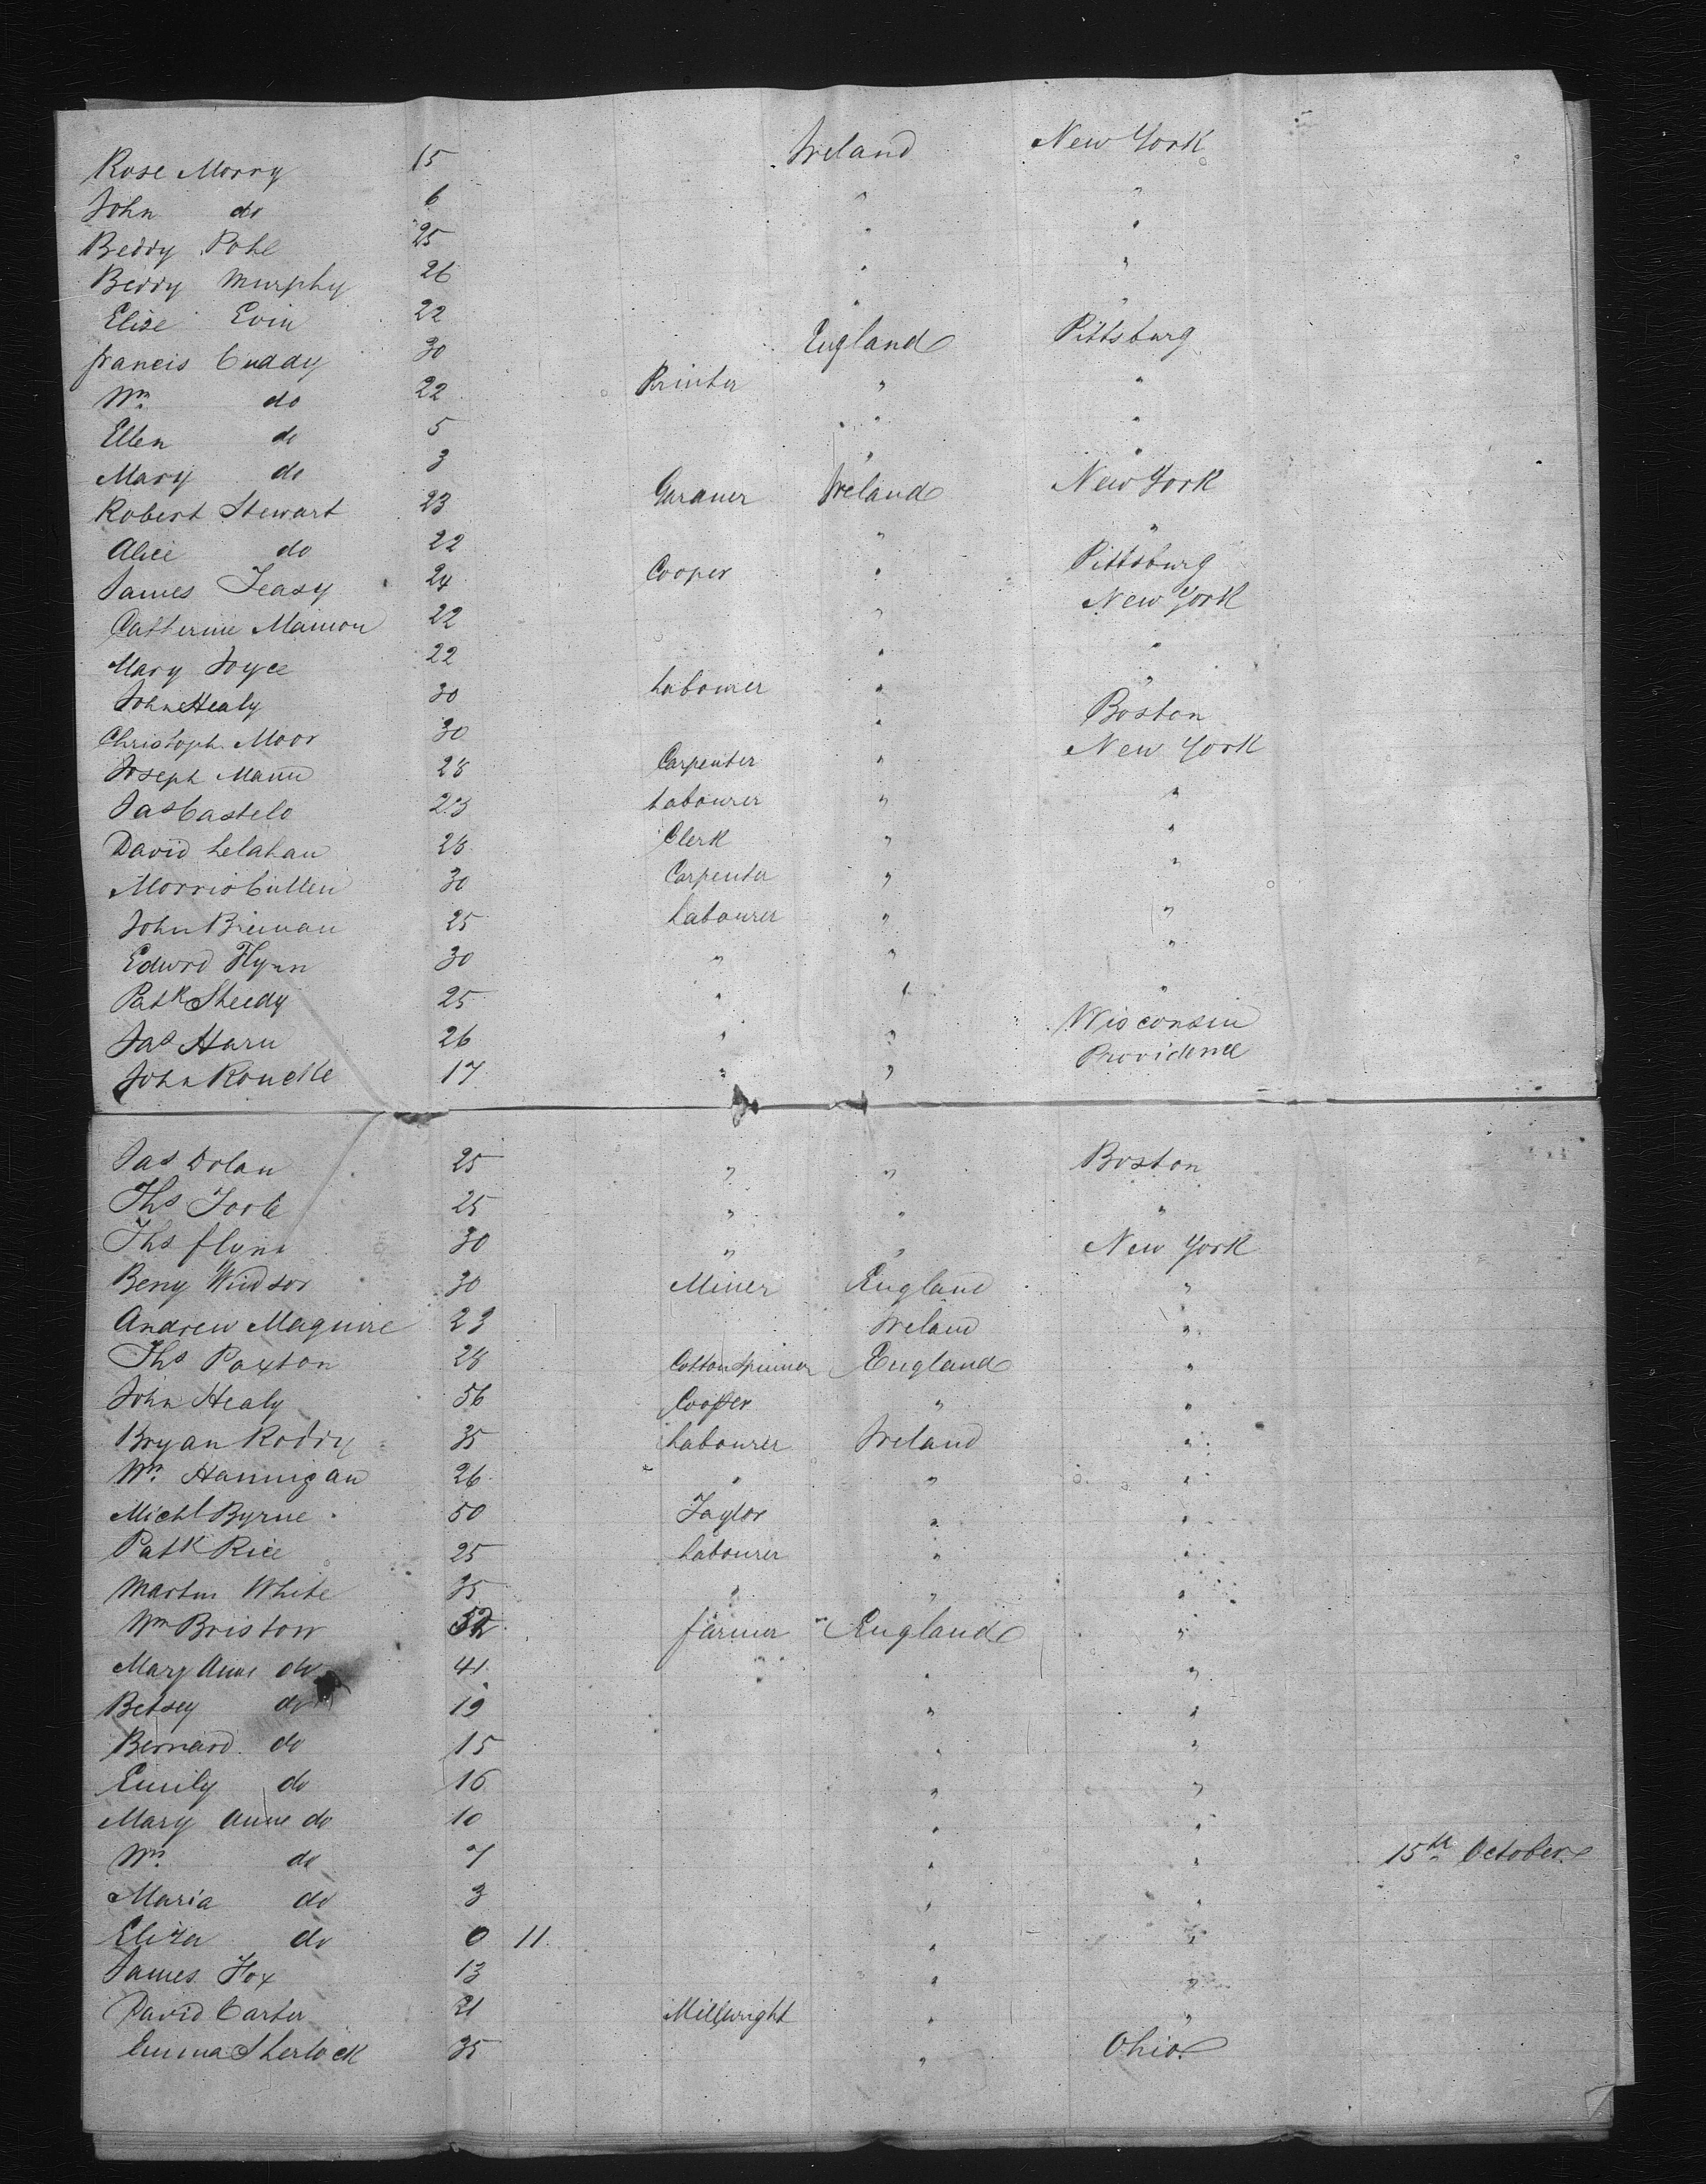 Rose Morry 15 Ireland New York
John do 6 " "
Beddy Pohl 25 " "
Beddy Murphy 26 " "
Elise Evin 22 " "
francis Cuddy 30 England Pittsburg
Wm. do 22 Printer " "
Ellen do 5 " "
Mary do 3 " "
Robert Stewart 23 Gardner Ireland New York
Alice do 22 " "
James Feasy 24 Cooper " Pittsburg
Catherine Mannon 22 " New York
Mary Joyce 22 " "
John Healy 30 Labourer " "
Christoph. Moor 30 " Boston
Joseph Mann 28 Carpenter " New York
Jas Castelo 23 Labourer " "
David Lelahan 28 Clerk " "
Morris Cullen 30 Carpenter " "
John Brennan 25 Labourer " "
Edwrd Flynn 30 " " "
Patk Sheedy 25 " " "
Jas Harn 26 " " Wisconsin
John Roucke 17 " " Providence
Jas Dolan 25 " " Boston
Ths Toole 25 " " "
Ths flynn 30 " " New York
Beny Windsor 30 Miner England "
Andrew Maguire 23 Ireland "
Ths Paxton 28 Cotton Spinner England "
John Healy 56 Cooper " "
Bryan Roddy 35 Labourer Ireland "
Wm. Hannigan 26 " " "
Michl Byrne 50 Taylor " "
Patk Rice 25 Labourer " "
Martin White 35 " " "
Wm Bristow 52 farmer England "
Mary Anne do 41 " "
Betsey do 19 " "
Bernard do 15 " "
Emily do 16 " "
Mary Anne do 10 " "
Wm. do 7 " " 15th October
Maria do 3 " "
Eliza do 0 11 " "
James Fox 13 " "
David Carter 21 Millwright " "
Emma Sherlock 35 " Ohio